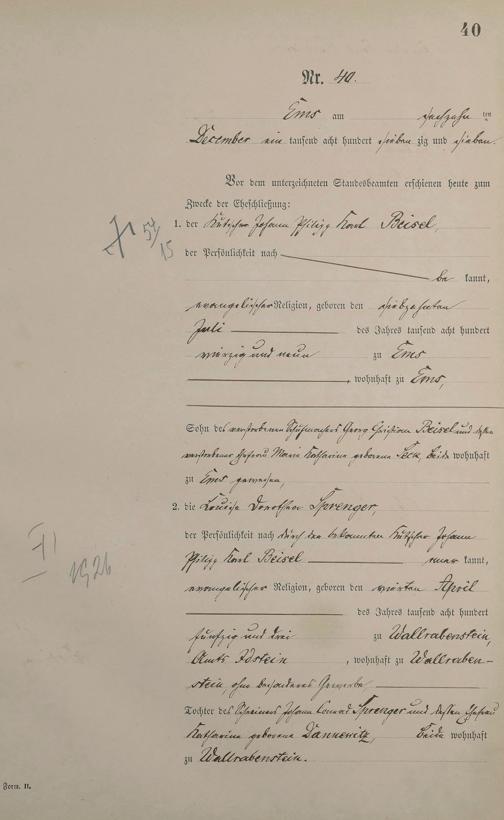 40
Nr. 40.
Ems am sechzehn ten
December ein tausend acht hundert sieben zig und sieben.
Vor dem unterzeichneten Standesbeamten erschienen heute zum
Zwecke der Eheschließung:
1. der Kutscher Johann Philipp Karl Beisel,
† 54/15
der Persönlichkeit nach
be kannt,
evangelischer Religion, geboren den siebzehnten
Juli des Jahres tausend acht hundert
vierzig und neun zu Ems
, wohnhaft zu Ems,
Sohn des verstorbenen Schuhmachers Georg Christian Beisel und dessen
verstorbener Ehefrau Maria Katharina geborene Seck, beide wohnhaft
zu Ems gewesen,
2. die Louise Dorothea Sprenger,
der Persönlichkeit nach durch den bekannten Kutscher Johann
Philipp Karl Beisel aner kannt,
1926
evangelischer Religion, geboren den vierten April
des Jahres tausend acht hundert
fünfzig und drei zu Wallrabenstein,
Amts Idstein, wohnhaft zu Wallraben-
stein, ohne besonderes Gewerbe,
Tochter des Schreiners Johann Conrad Sprenger und dessen Ehefrau
Katharina geborene Dannewitz, beide wohnhaft
zu Wallrabenstein.
Form. B.